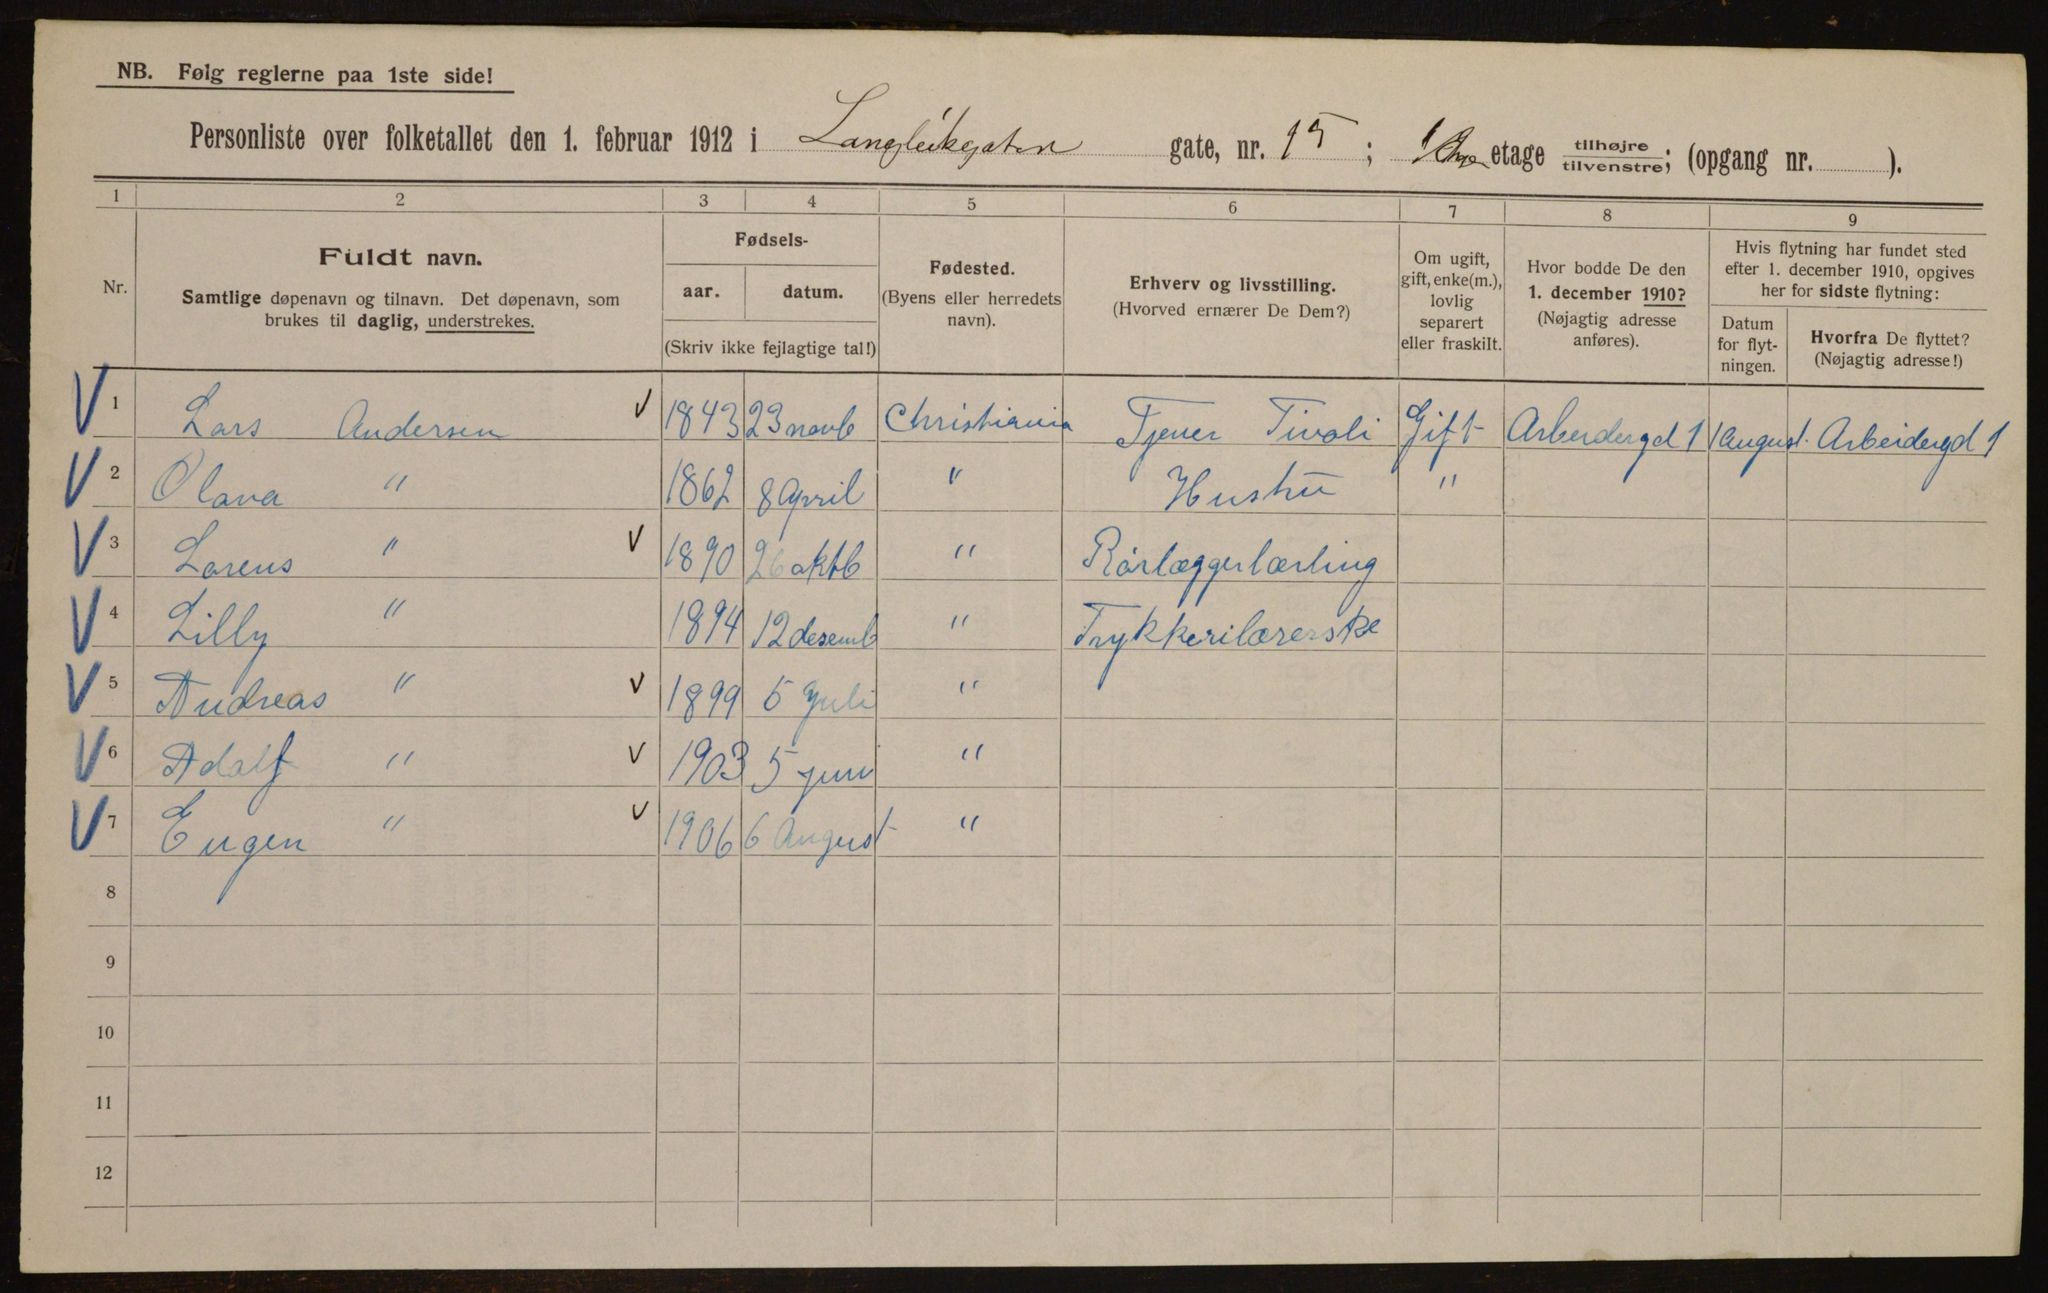 NB. Følg reglerne paa 1ste side!
Personliste over folketallet den 1. februar 1912 i Langleikgaten gate, nr. 15; 1 etage tilhøjre/tilvenstre; (opgang nr. ).
1 2 3 4 5 6 7 8 9
Nr.
Fuldt navn.
Samtlige døpenavn og tilnavn. Det døpenavn, som
brukes til daglig, understrekes.
Fødsels-
aar. datum.
(Skriv ikke fejlagtige tal!)
Fødested.
(Byens eller herredets
navn).
Erhverv og livsstilling.
(Hvorved ernærer De Dem?)
Om ugift,
gift, enke(m.),
lovlig
separert
eller fraskilt.
Hvor bodde De den
1. december 1910?
(Nøjagtig adresse
anføres).
Hvis flytning har fundet sted
efter 1. december 1910, opgives
her for sidste flytning:
Datum
for flyt-
ningen.
Hvorfra De flyttet?
(Nøjagtig adresse!)
V 1 Lars Andersen V 1843 23 novb Christiania Tjener Tivoli Gift Arbeidergd 1 1 August. Arbeidergd 1
V 2 Olava " 1862 8 April " Hustru "
V 3 Lorens " V 1890 26 oktb " Rörlæggerlærling
V 4 Lilly " 1894 12 desemb " Trykkerilærerske
V 5 Andreas " V 1899 5 Juli "
V 6 Adolf " V 1903 5 juni "
V 7 Eugen " V 1906 6 August "
8
9
10
11
12